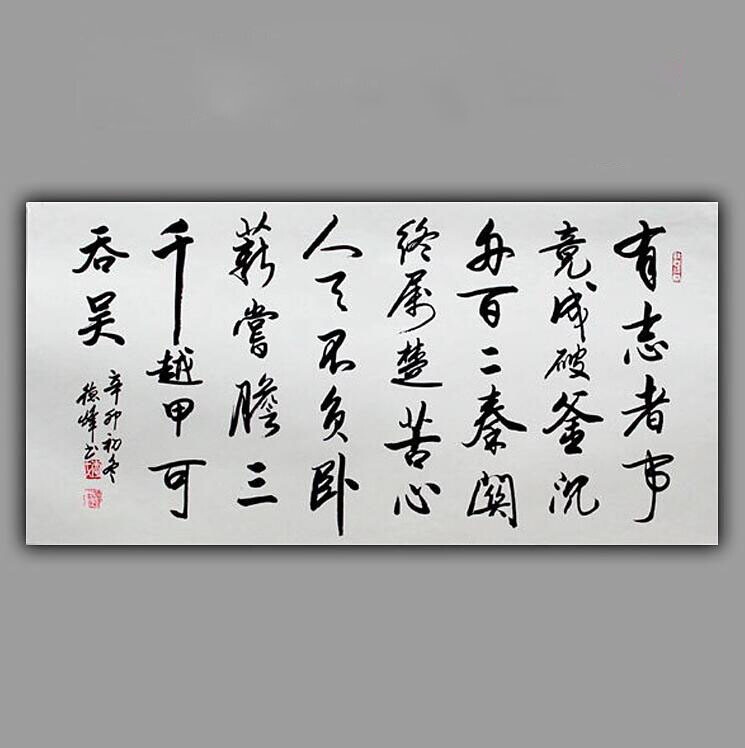 有志者事
竟成破釜沉
舟百二秦關
終属楚苦心
人天不负卧
薪嘗膽三
千越甲可
吞吴
辛卯初冬
德峰书